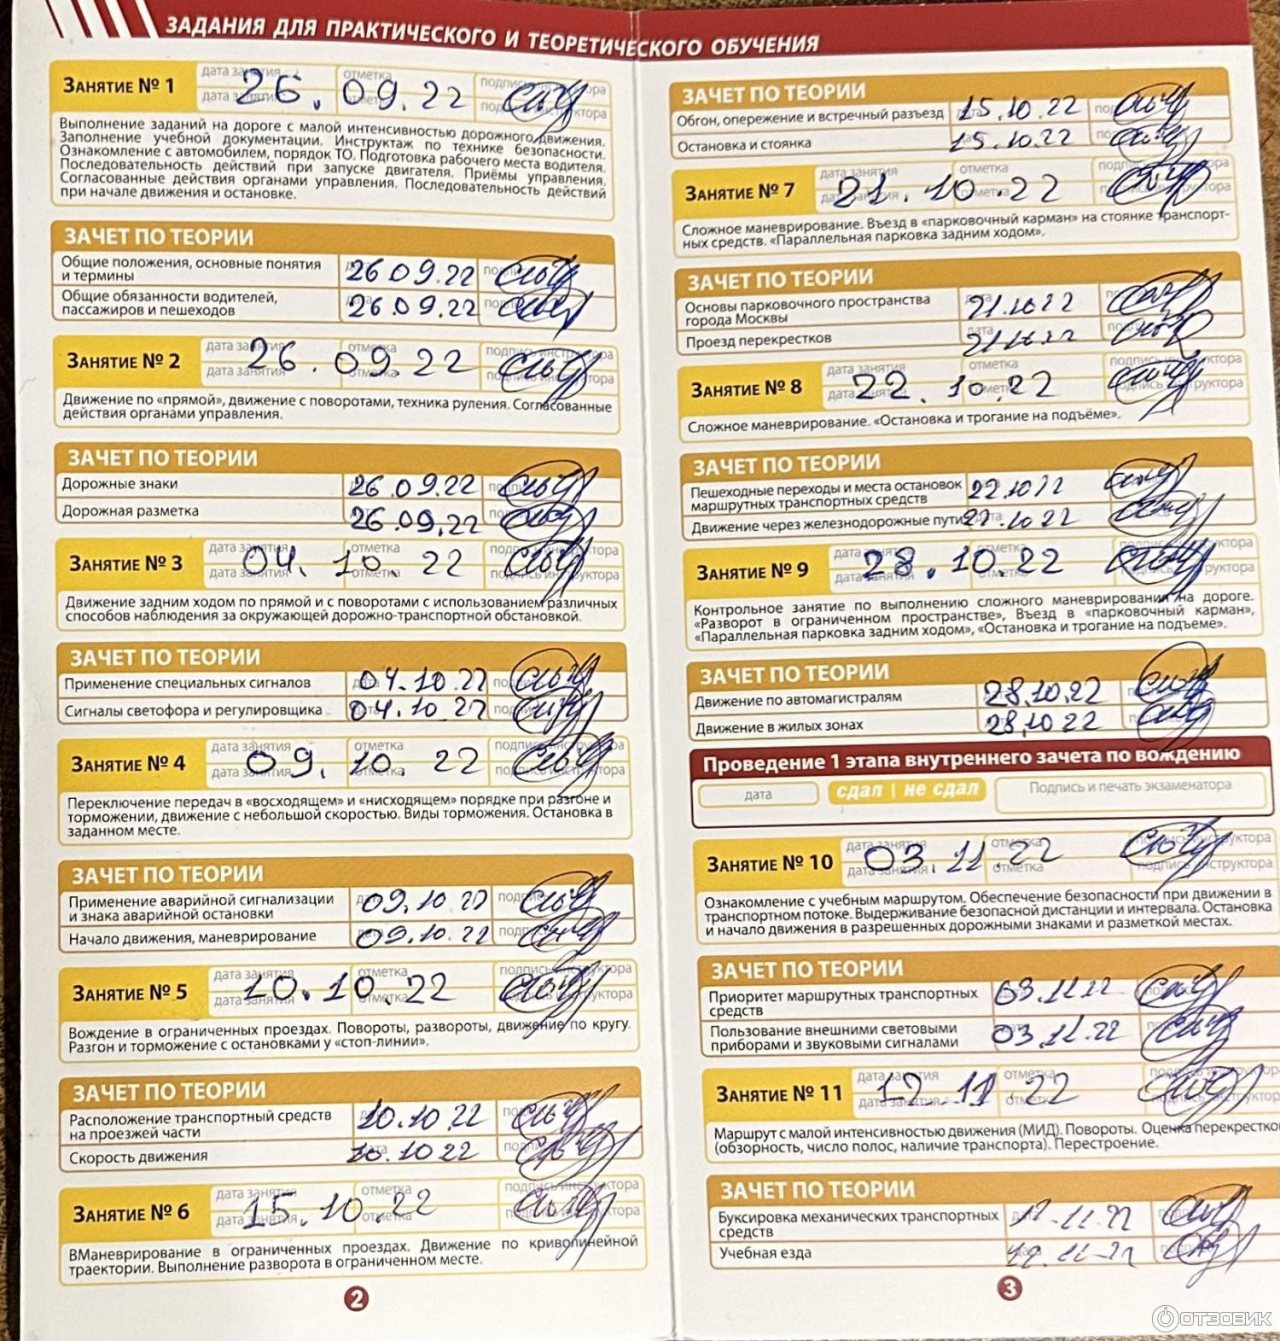 ЗАДАНИЯ ДЛЯ ПРАКТИЧЕСКОГО И ТЕОРЕТИЧЕСКОГО ОБУЧЕНИЯ
Занятие № 1
дата занятия отметка подпись инструктора
26.09.22
дата занятия отметка подпись инструктора
Выполнение заданий на дороге с малой интенсивностью дорожного движения.
Заполнение учебной документации. Инструктаж по технике безопасности.
Ознакомление с автомобилем, порядок ТО. Подготовка рабочего места водителя.
Последовательность действий при запуске двигателя. Приёмы управления.
Согласованные действия органами управления. Последовательность действий
при начале движения и остановке.
ЗАЧЕТ ПО ТЕОРИИ
Общие положения, основные понятия
и термины 26 09.22
Общие обязанности водителей,
пассажиров и пешеходов 26 09.22
Занятие № 2
дата занятия отметка подпись инструктора
26.09.22
дата занятия отметка подпись инструктора
Движение по «прямой», движение с поворотами, техника руления. Согласованные
действия органами управления.
ЗАЧЕТ ПО ТЕОРИИ
Дорожные знаки 26 09.22
Дорожная разметка 26.09.22
Занятие № 3
дата занятия отметка подпись инструктора
04.10.22
дата занятия отметка подпись инструктора
Движение задним ходом по прямой и с поворотами с использованием различных
способов наблюдения за окружающей дорожно-транспортной обстановкой.
ЗАЧЕТ ПО ТЕОРИИ
Применение специальных сигналов 04.10.22
Сигналы светофора и регулировщика 04.10.22
Занятие № 4
дата занятия отметка подпись инструктора
09.10.22
дата занятия отметка подпись инструктора
Переключение передач в «восходящем» и «нисходящем» порядке при разгоне и
торможении, движение с небольшой скоростью. Виды торможения. Остановка в
заданном месте.
ЗАЧЕТ ПО ТЕОРИИ
Применение аварийной сигнализации
и знака аварийной остановки 09.10.22
Начало движения, маневрирование 09.10.22
Занятие № 5
дата занятия отметка подпись инструктора
10.10.22
дата занятия отметка подпись инструктора
Вождение в ограниченных проездах. Повороты, развороты, движение по кругу.
Разгон и торможение с остановками у «стоп-линии».
ЗАЧЕТ ПО ТЕОРИИ
Расположение транспортный средств
на проезжей части 10.10 22
Скорость движения 10.10 22
Занятие № 6
дата занятия отметка подпись инструктора
15.10.22
дата занятия отметка подпись инструктора
ВМаневрирование в ограниченных проездах. Движение по криволинейной
траектории. Выполнение разворота в ограниченном месте.
2
ЗАЧЕТ ПО ТЕОРИИ
Обгон, опережение и встречный разъезд 15.10.22
Остановка и стоянка 15.10.22
Занятие № 7
дата занятия отметка подпись инструктора
21.10.22
дата занятия отметка подпись инструктора
Сложное маневрирование. Въезд в «парковочный карман» на стоянке транспорт-
ных средств. «Параллельная парковка задним ходом».
ЗАЧЕТ ПО ТЕОРИИ
Основы парковочного пространства
города Москвы 21.10 22
Проезд перекрестков 21.10 22
Занятие № 8
дата занятия отметка подпись инструктора
22.10.22
дата занятия отметка подпись инструктора
Сложное маневрирование. «Остановка и трогание на подъёме».
ЗАЧЕТ ПО ТЕОРИИ
Пешеходные переходы и места остановок
маршрутных транспортных средств 22.10 22
Движение через железнодорожные пути 22.10 22
Занятие № 9
дата занятия отметка подпись инструктора
28.10.22
дата занятия отметка подпись инструктора
Контрольное занятие по выполнению сложного маневрирования на дороге.
«Разворот в ограниченном пространстве», Въезд в «парковочный карман»,
«Параллельная парковка задним ходом», «Остановка и трогание на подъеме».
ЗАЧЕТ ПО ТЕОРИИ
Движение по автомагистралям 28.10.22
Движение в жилых зонах 28.10 22
Проведение 1 этапа внутреннего зачета по вождению
дата сдал | не сдал Подпись и печать экзаменатора
Занятие № 10
дата занятия отметка подпись инструктора
03.11.22
дата занятия отметка подпись инструктора
Ознакомление с учебным маршрутом. Обеспечение безопасности при движении в
транспортном потоке. Выдерживание безопасной дистанции и интервала. Остановка
и начало движения в разрешенных дорожными знаками и разметкой местах.
ЗАЧЕТ ПО ТЕОРИИ
Приоритет маршрутных транспортных
средств 03.11.22
Пользование внешними световыми
приборами и звуковыми сигналами 03.11.22
Занятие № 11
дата занятия отметка подпись инструктора
12.11 22
дата занятия отметка подпись инструктора
Маршрут с малой интенсивностью движения (МИД). Повороты. Оценка перекрестко
(обзорность, число полос, наличие транспорта). Перестроение.
ЗАЧЕТ ПО ТЕОРИИ
Буксировка механических транспортных
средств 12.11.22
Учебная езда 12.11.22
3
ОТЗОВИК